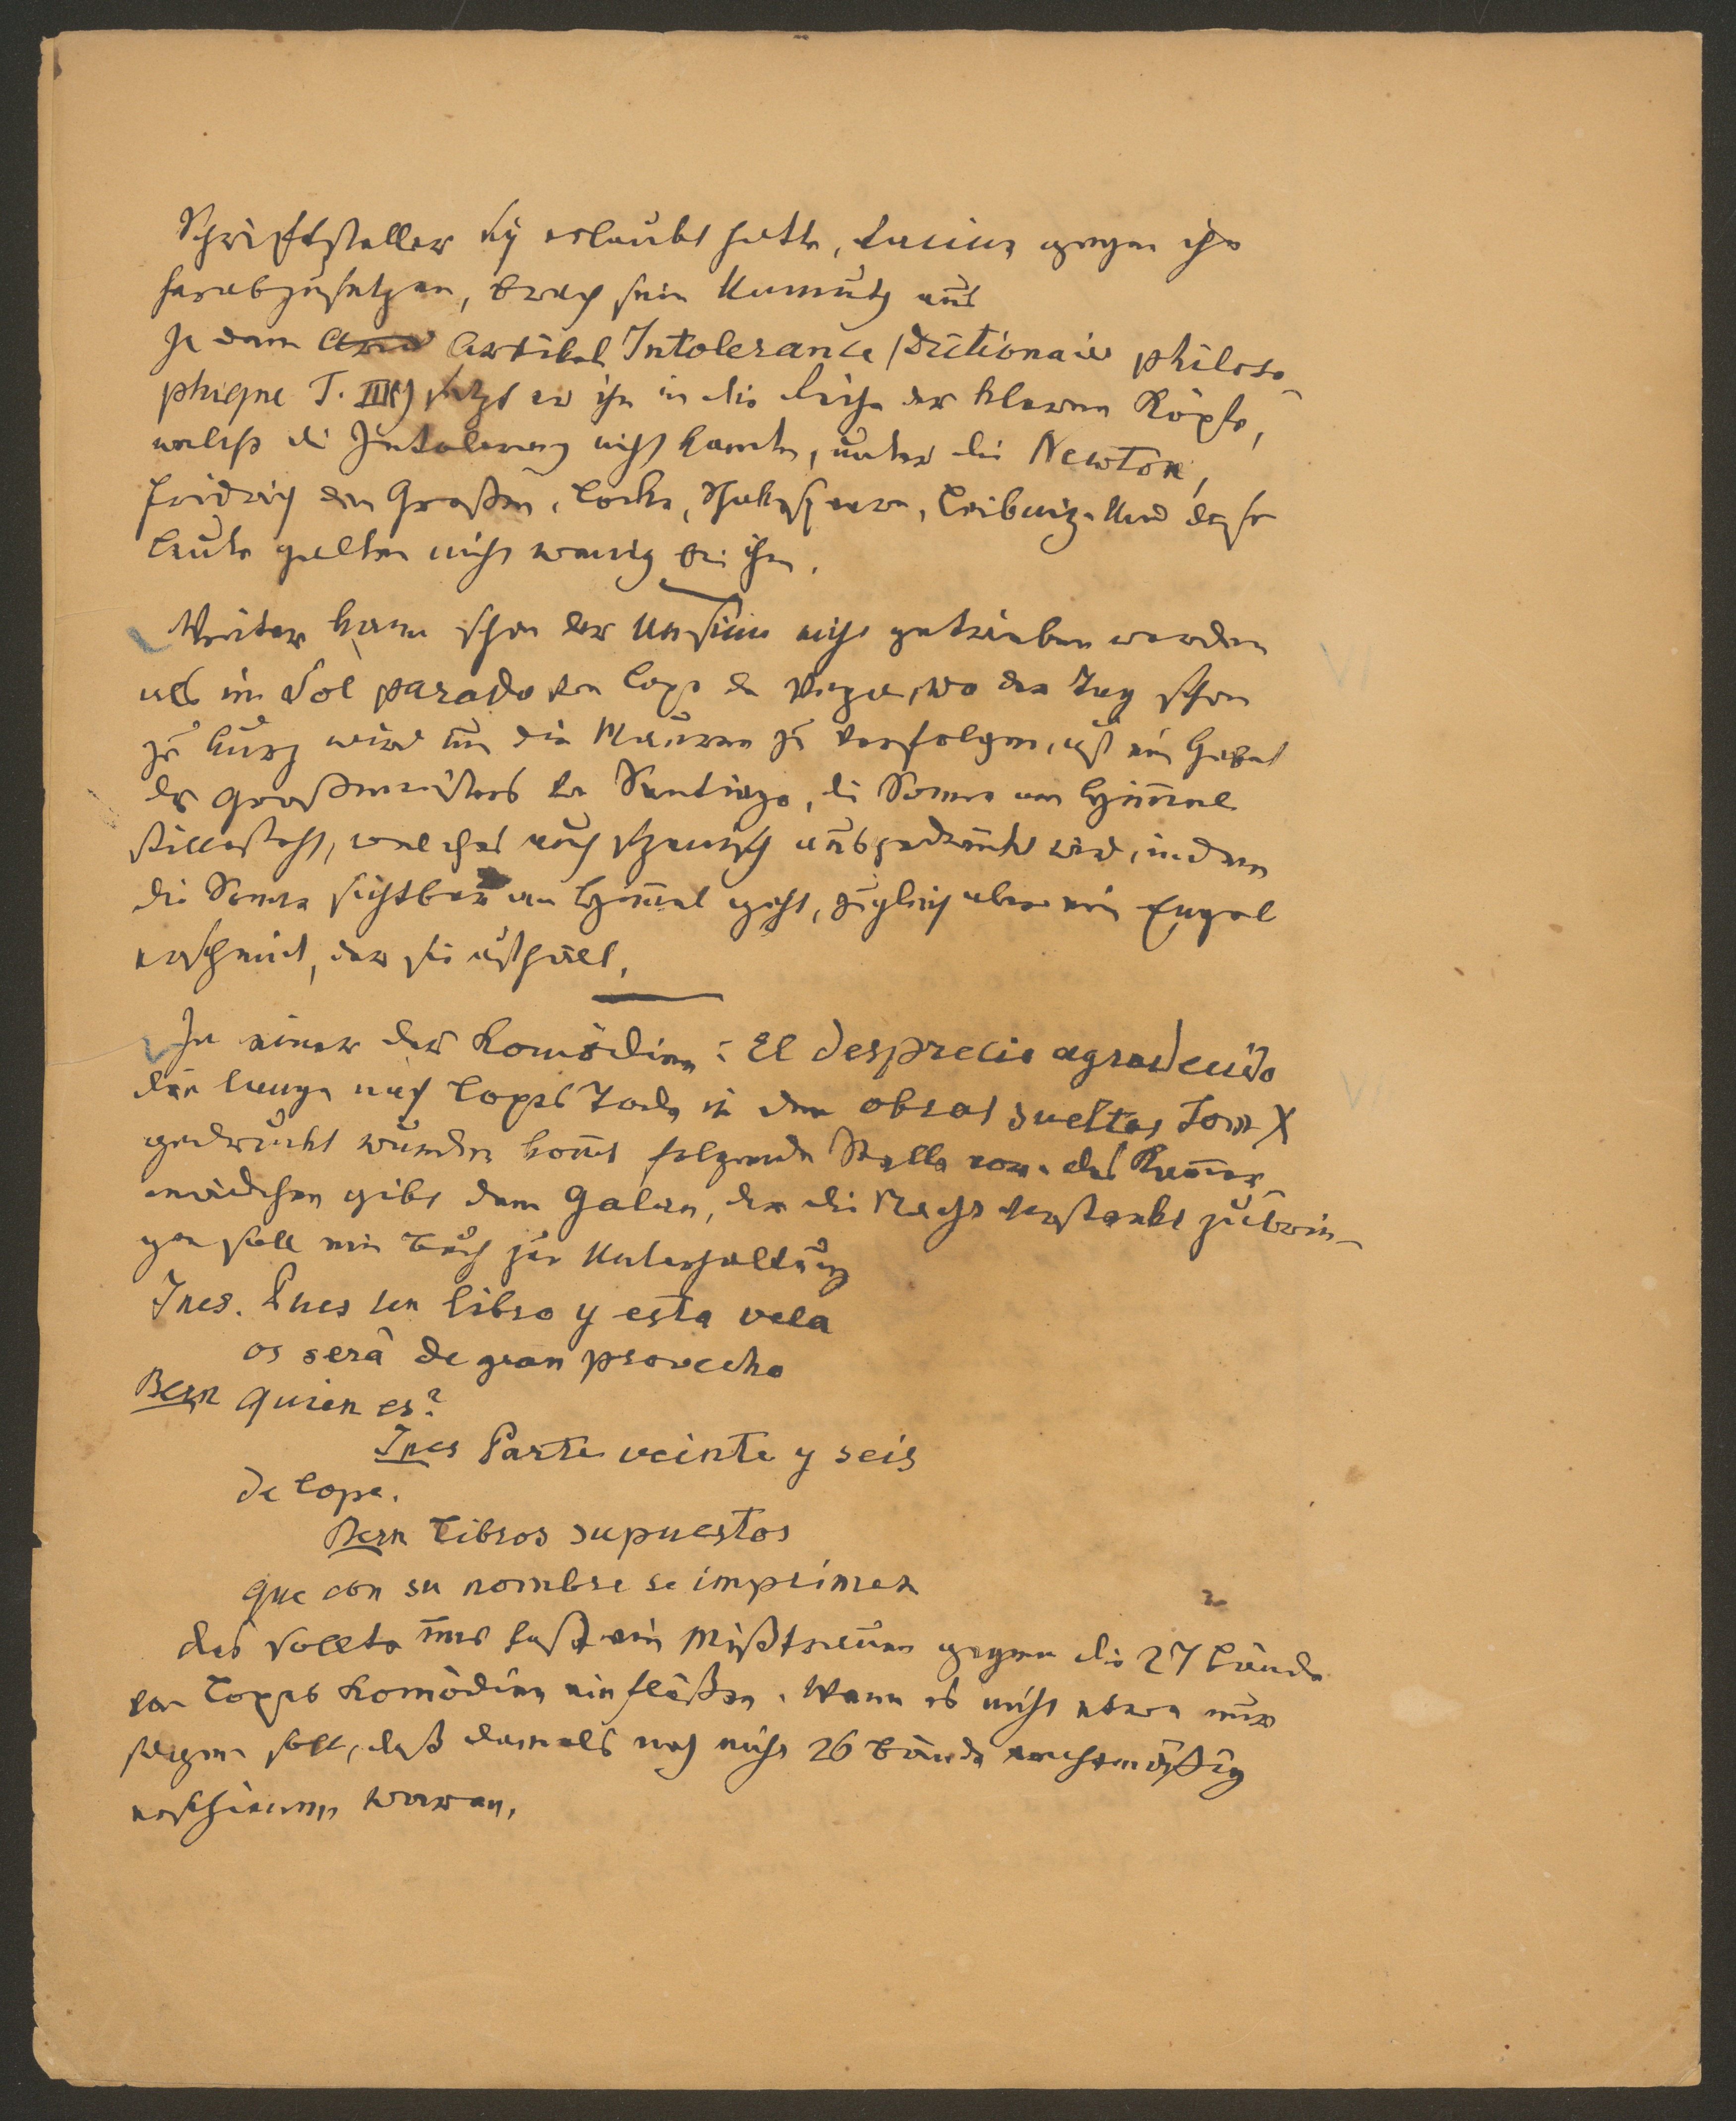 Schriftsteller sich erlaubt hatte, Racine gegen ihn
herabzusetzen, brach sein Unmuth aus
In dem Artikel Intolerance (Dictionaire philoso-
phique T. III) setzt er ihn in die Reihe der klaren Köpfe,
welche die Intoleranz nicht kannten, unter die Newton,
Friedrich den Großen, Locke, Shakespeare, Leibnitz. Und diese
Leute galten nicht wenig bei ihm.
Weiter kann schon der Unsinn nicht getrieben werden
als im Sol parado von Lope de Vega, wo der Tag schon
zu kurz wird um die Mauren zu verfolgen, auf ein Gebet
des Großmeisters von Santiago, die Sonne am Himmel
stillesteht, welches auch szenisch ausgedrückt wird, indem
die Sonne sichtbar am Himmel geht, zugleich aber ein Engel
erscheint, der sie aufhält.
In einer der Komödien: El desprecio agradecido
die lange nach Lopes Tode in den obras sueltas Tom X
gedruckt wurden kommt folgende Stelle vor. das Kammer-
mädchen gibt dem Galan, der die Nacht versteckt zubrin-
gen soll ein Buch zur Unterhaltung
Ines. Pues un libro y esta vela
os será de gran provecho
Bern Quien es?
Ines Parte veinte y seis
de Lope.
Bern Libros supuestos
que con su nombre se imprimen
das sollte uns fast ein Mißtrauen gegen die 27 Bände
von Lopes Komödien einflößen. Wenn es nicht etwa nur
sagen soll, daß damals noch nicht 26 Bände rechtmäßig
erschienen waren.